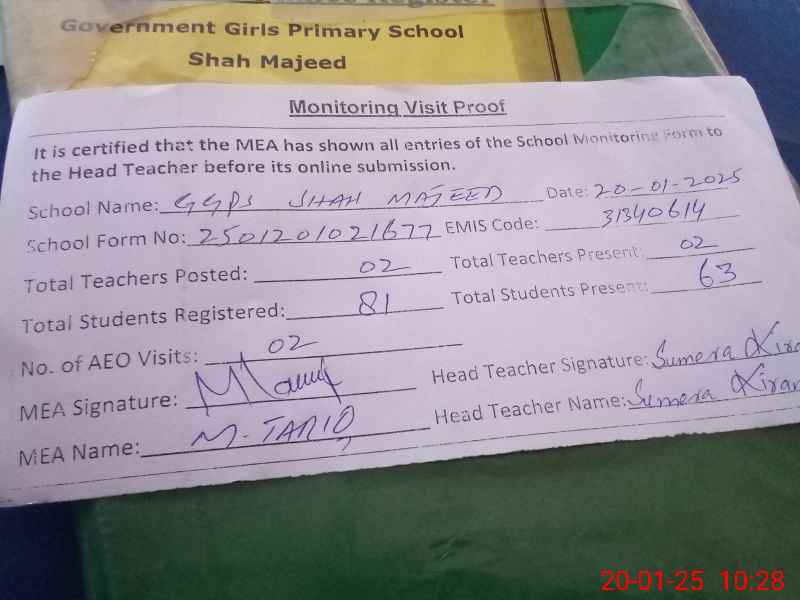 Register
Government Girls Primary School
Shah Majeed
Monitoring Visit Proof
It is certified that the MEA has shown all entries of the School Monitoring Form to
the Head Teacher before its online submission.
School Name: GGPS SHAH MAJEED Date: 20-01-2025
School Form No: 2501201021677 EMIS Code: 31340614
Total Teachers Posted: 02 Total Teachers Present: 02
Total Students Registered: 81 Total Students Present: 63
No. of AEO Visits: 02
MEA Signature: Head Teacher Signature: Sumera Kiran
MEA Name: M. TARIQ Head Teacher Name: Sumera Kiran
20-01-25 10:28